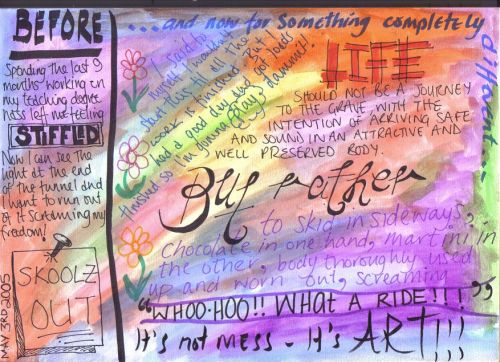 BEFORE
Spending the last 9
months working on
my teaching degree
has left me feeling
STIFFLED
Now I can see the
light at the end
of the tunnel and
I want to run out
of it screaming my
freedom!
SKOOLZ
OUT
MAY 3RD 2005
...and now for something completely
different...
I said to
myself I wouldn't
start this til all the
work is finished but I
had a good day and got loads
finished so I'm gonna play dammit!!
LIFE
SHOULD NOT BE A JOURNEY
TO THE GRAVE WITH THE
INTENTION OF ARRIVING SAFE
AND SOUND IN AN ATTRACTIVE AND
WELL PRESERVED BODY.
But rather
to skid in sideways,
chocolate in one hand, martini in
the other, body thoroughly used
up and worn out, screaming
"WHOO-HOO!! WHAT A RIDE!!!"
It's not MESS - It's ART!!!